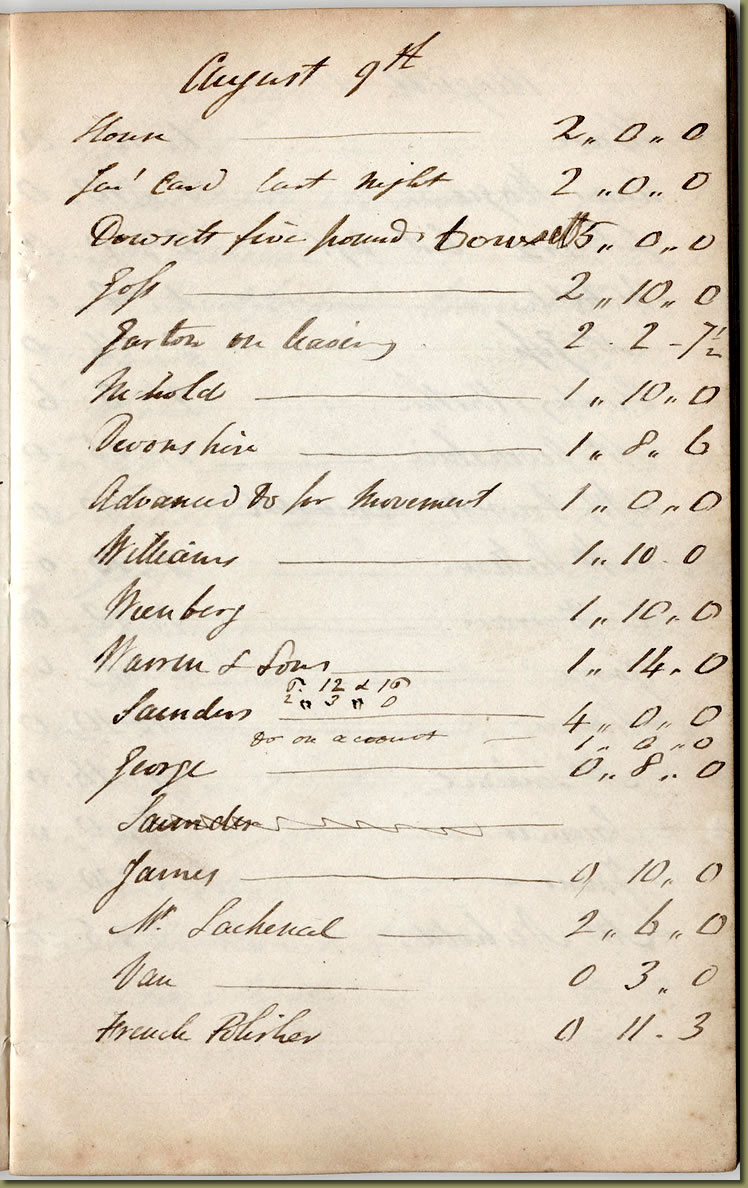 August 9th
House 2 „ 0 „ 0
card last night 2 „ 0 „ 0
Dowsett five pounds Dowsett 5 „ 0 „ 0
Goss 2 „ 10 „ 0
Garton on leasing 2 - 2 - 7½
Nichold 1 „ 10 „ 0
Devonshire 1 „ 8 „ 6
Advanced Do for Movement 1 „ 0 „ 0
Williams 1 „ 10 - 0
Wienberg 1 „ 10 „ 0
Warren & Sons 1 „ 14 „ 0
12 & 10
2 „ 3 „ 0
Saunders 4 „ 0 „ 0
Do on account 1 „ 0 „ 0
George 0 „ 8 „ 0
Saunders
James 0 10 „ 0
Mr Lachenal 2 „ 6 „ 0
Van 0 3 „ 0
French Polisher 0 11 - 3